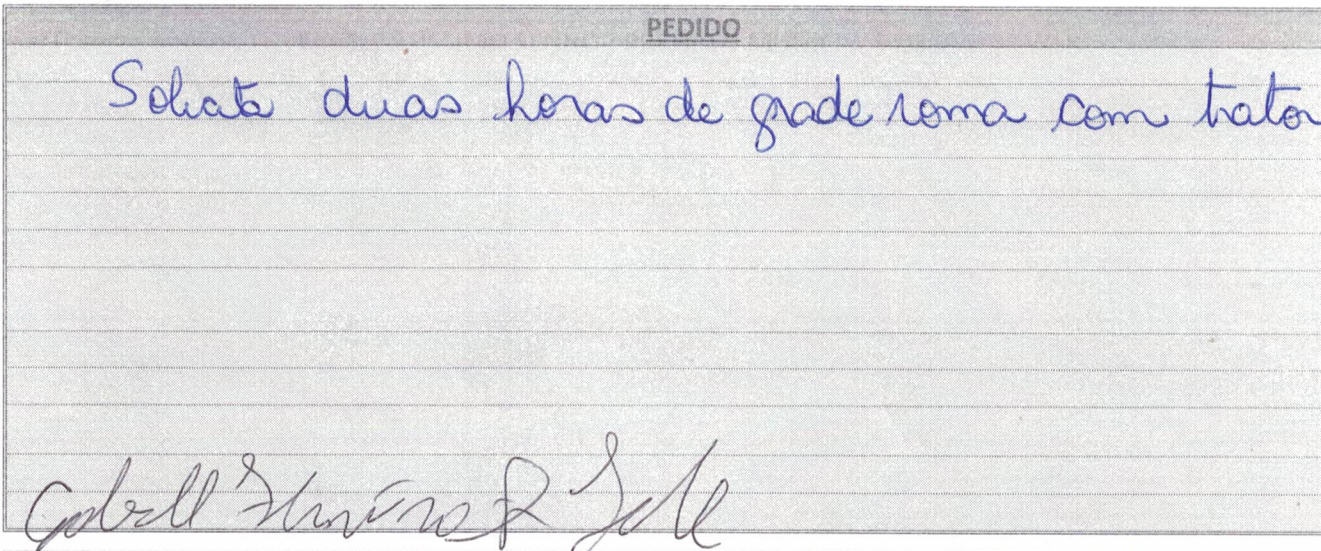 PEDIDO
Solicita duas horas de grade roma com trator